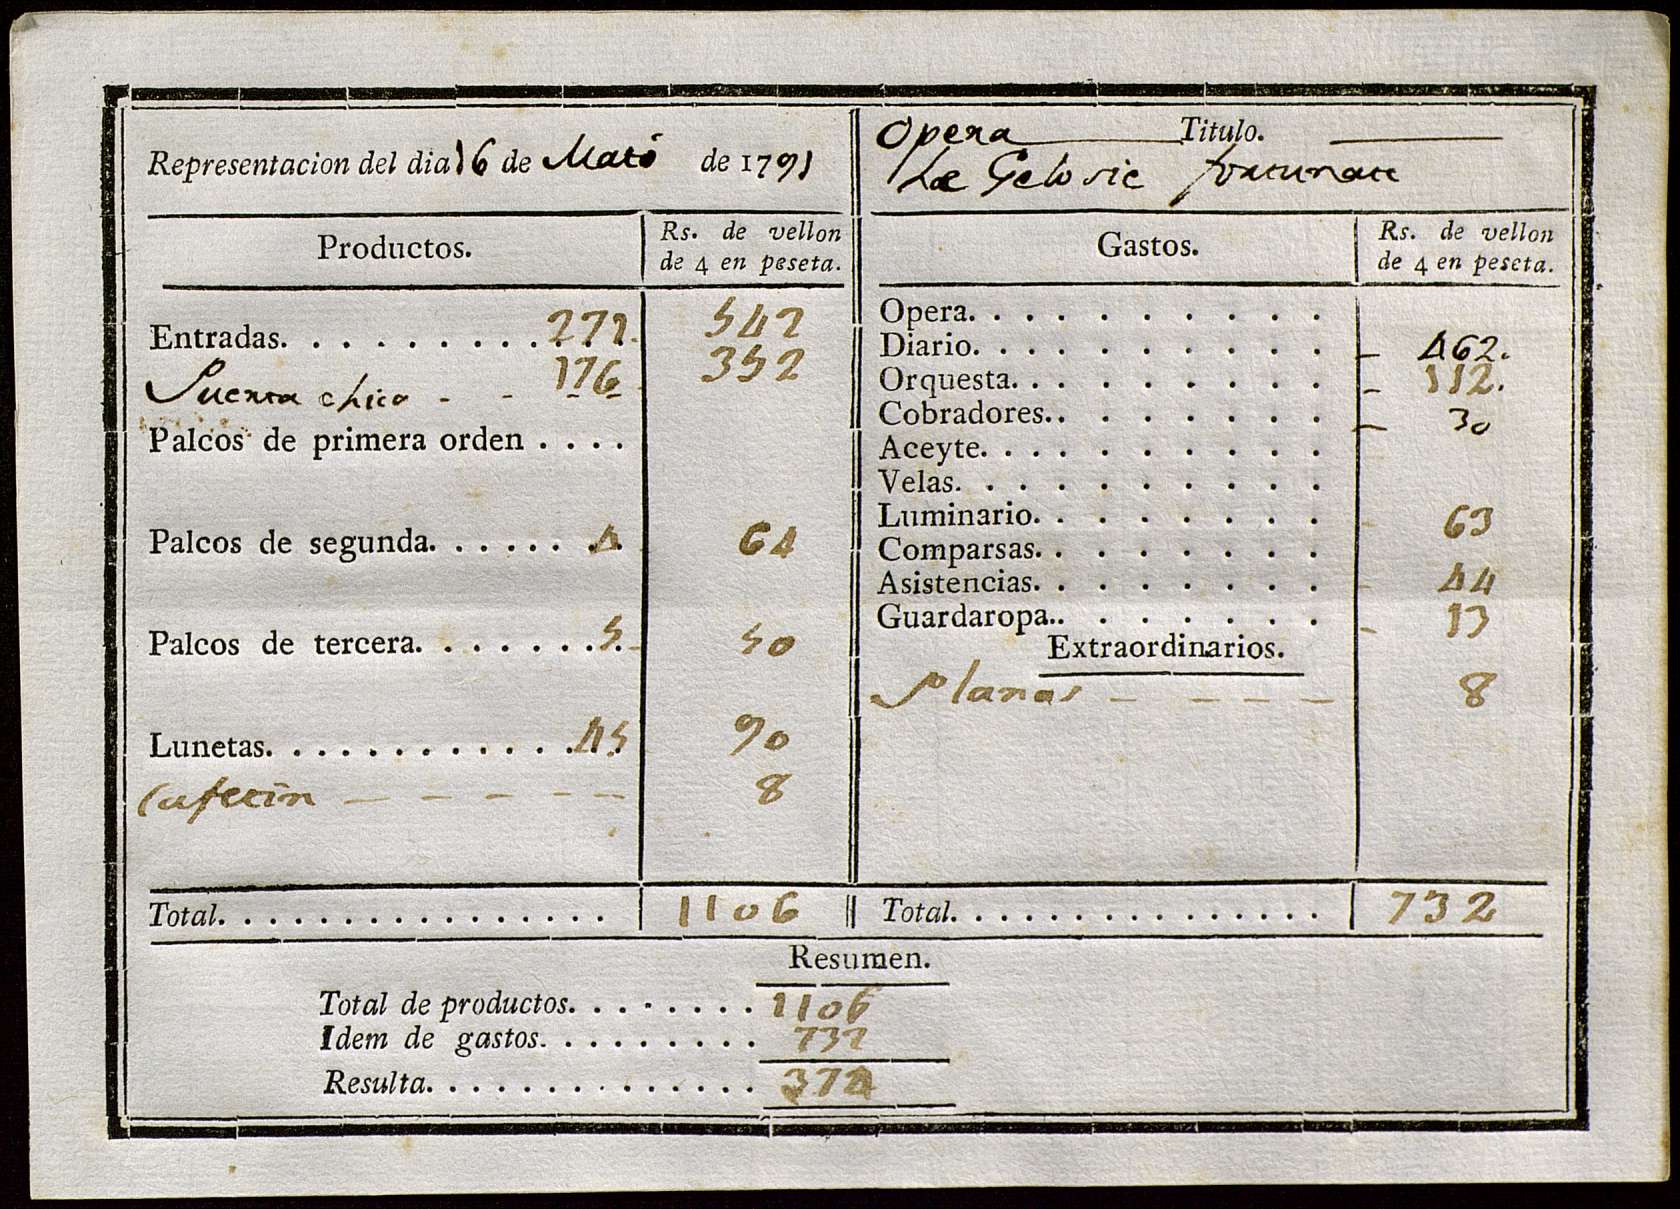 Representacion del dia 16 de Maio de 1791
Opera Titulo.
Le Gelosie fortunate
Productos. Rs. de vellon de 4 en peseta.
Entradas. . . . . . . . . . 271. 542
Puerta chica - - - - 176 352
Palcos de primera orden . . . .
Palcos de segunda. . . . . . . 4 64
Palcos de tercera. . . . . . . . 5 50
Lunetas. . . . . . . . . . . . . 45 90
Cafetin - - - - - 8
Total. . . . . . . . . . . . . . . . 1106
Gastos. Rs. de vellon de 4 en peseta.
Opera. . . . . . . . . .
Diario. . . . . . . . . . 462.
Orquesta. . . . . . . . . 112.
Cobradores. . . . . . . . 30
Aceyte. . . . . . . . . .
Velas. . . . . . . . . .
Luminario. . . . . . . . 63
Comparsas. . . . . . . .
Asistencias. . . . . . . . 44
Guardaropa. . . . . . . . 13
Extraordinarios.
Planas - - - - - 8
Total. . . . . . . . . . . . . . . 732
Resumen.
Total de productos. . . . . . . . 1106
Idem de gastos. . . . . . . . . 732
Resulta. . . . . . . . . . . . . . 374